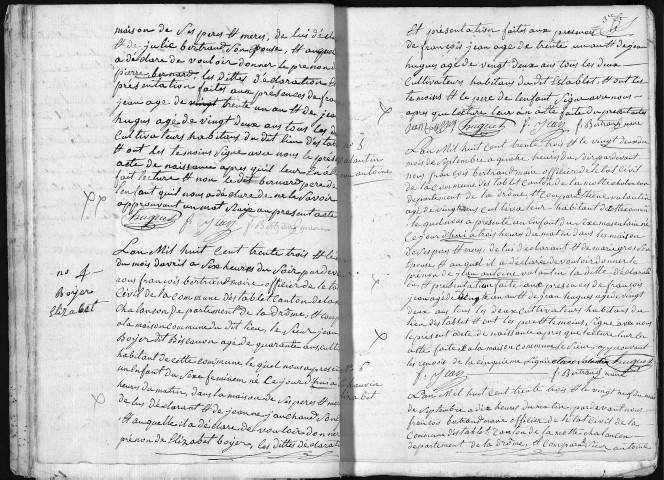 maison de Ses peres & meres, de lui décla
& de julie bertrand Son épouse, & auquel
a déclaré de vouloir donner le prenom
pierre bernard les dittes déclaration &
présentation faites aux présences de fran
jean agé de vingt trente un an & de jea
hugus agé de vingt deux ans tous les deux
Cultivateurs habitans du dit lieu des tabl
& ont les temoins Signé avec nous le prese
acte de naissance après qu'il leur En a
fait lecture & non le dit bernard pere de
l'enfant qui nous a déclaré de ne le Savoir
approuvant un mot Rayé au present acte
huguet f. Jean
f. Bertrand maire
n° 4
Boyer
Elizabet
L'an Mil huit Cent trente trois & le
du mois d'avril a Six heures du Soir pardev
nous françois bertrand maire officier de letat
Civil de la Commune d'establet Canton de la m
Chalancon departement de la Drôme, & comp
a la maison commune du dit lieu, le Sieur jean
Boyer dit Biscaron agé de quarante ans cult
habitant de cette commune le quel nous a presen
un Enfant du Sexe feminin né Ce jourd'hui a
heures du matin dans la maison de Ses peres & mer
de lui déclarant & de jeanne jauchand Son
& auquelle il a déclaré de vouloir donner
prénon de Elizabet boyer, les dittes déclarat
n° 5
valantin
jean antoine
n° 6
Et présentation faites aux presences
de françois jean agé de trente un an & de jean
hugus agé de vingt deux ans tous les deux
Cultivateurs habitans du dit Establet & ont les
temoins & le pere de lenfant Signé avec nous
après que lecture leur En a été faite du present acte
huguet f. Jean f. Bertrand maire
L'an Mil huit Cent trente trois & le vingt deux du
mois de Septembre a quatre heures du Soir pardevant
nous françois bertrand maire officier de letat Civil
de la Commune d'establet Canton de la motte chalancon
departement de la drôme, & Comparu Etienne valantin
agé de vingt ans Cultivateur habitant de cette Commun
le quel nous a présenté un Enfant du Sexe masculain né
Ce jourd'hui a trois heures du matin dans la maison
de Ses peres & mers, de lui déclarant & de marie gres
Son Epouse, & auquel il a déclaré de vouloir donner le
prénon de jean antoine valantin la ditte déclarat
& présentation faite aux presences de françois
jean agé de trente un an & de jean hugus agé de vingt
deux ans tous les deux Cultivateurs habitans du
lieu des tablet & ont le pere & temoins, Signé avec nous
le present acte de naissance apres que lecture leur En
a été faite a la maison Commune le Sieur approuvant
les renvois de la cinquieme Ligne etiene valantin huguet
f. Jean f. Bertrand maire
L'an Mil huit Cent trente trois & le vingt neuf du mois
de Septembre a dix heures du matin, pardevant nous
françois bertrand maire officier de letat Civil de la
Commune d'establet Canton de la motte chalancon
departement de la drôme, & Comparu Sieur antoine